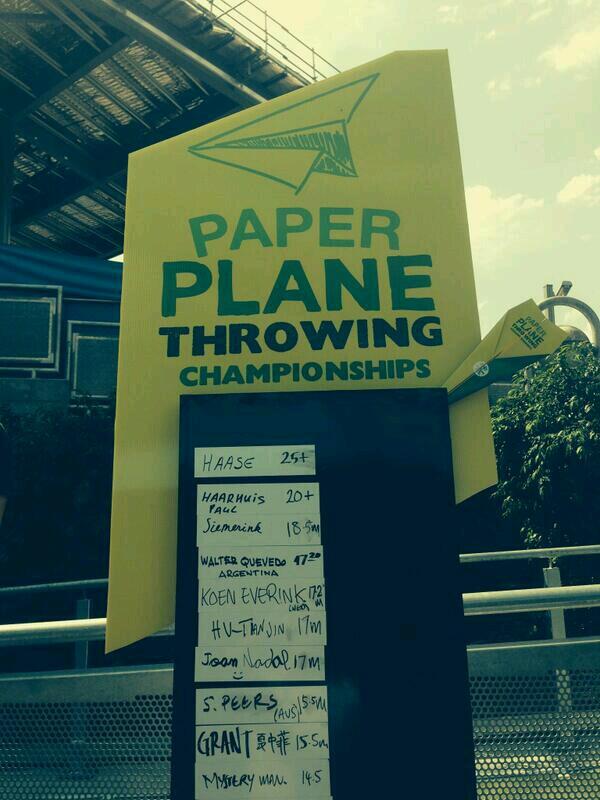 PAPER
PLANE
THROWING
CHAMPIONSHIPS
PAPER
PLANE
THROWING
HAASE 25+
HAARHUIS 20+
PAUL
Siemerink 18.5m
WALTER QUEVEDO 17.20
ARGENTINA
KOEN EVERINK 17.2
M
HU-TANJIN 17m
Joan Nadal 17m
S. PEERS 15.5m
(AUS)
GRANT 夏中菲 15.5m
MYSTERY MAN. 14.5